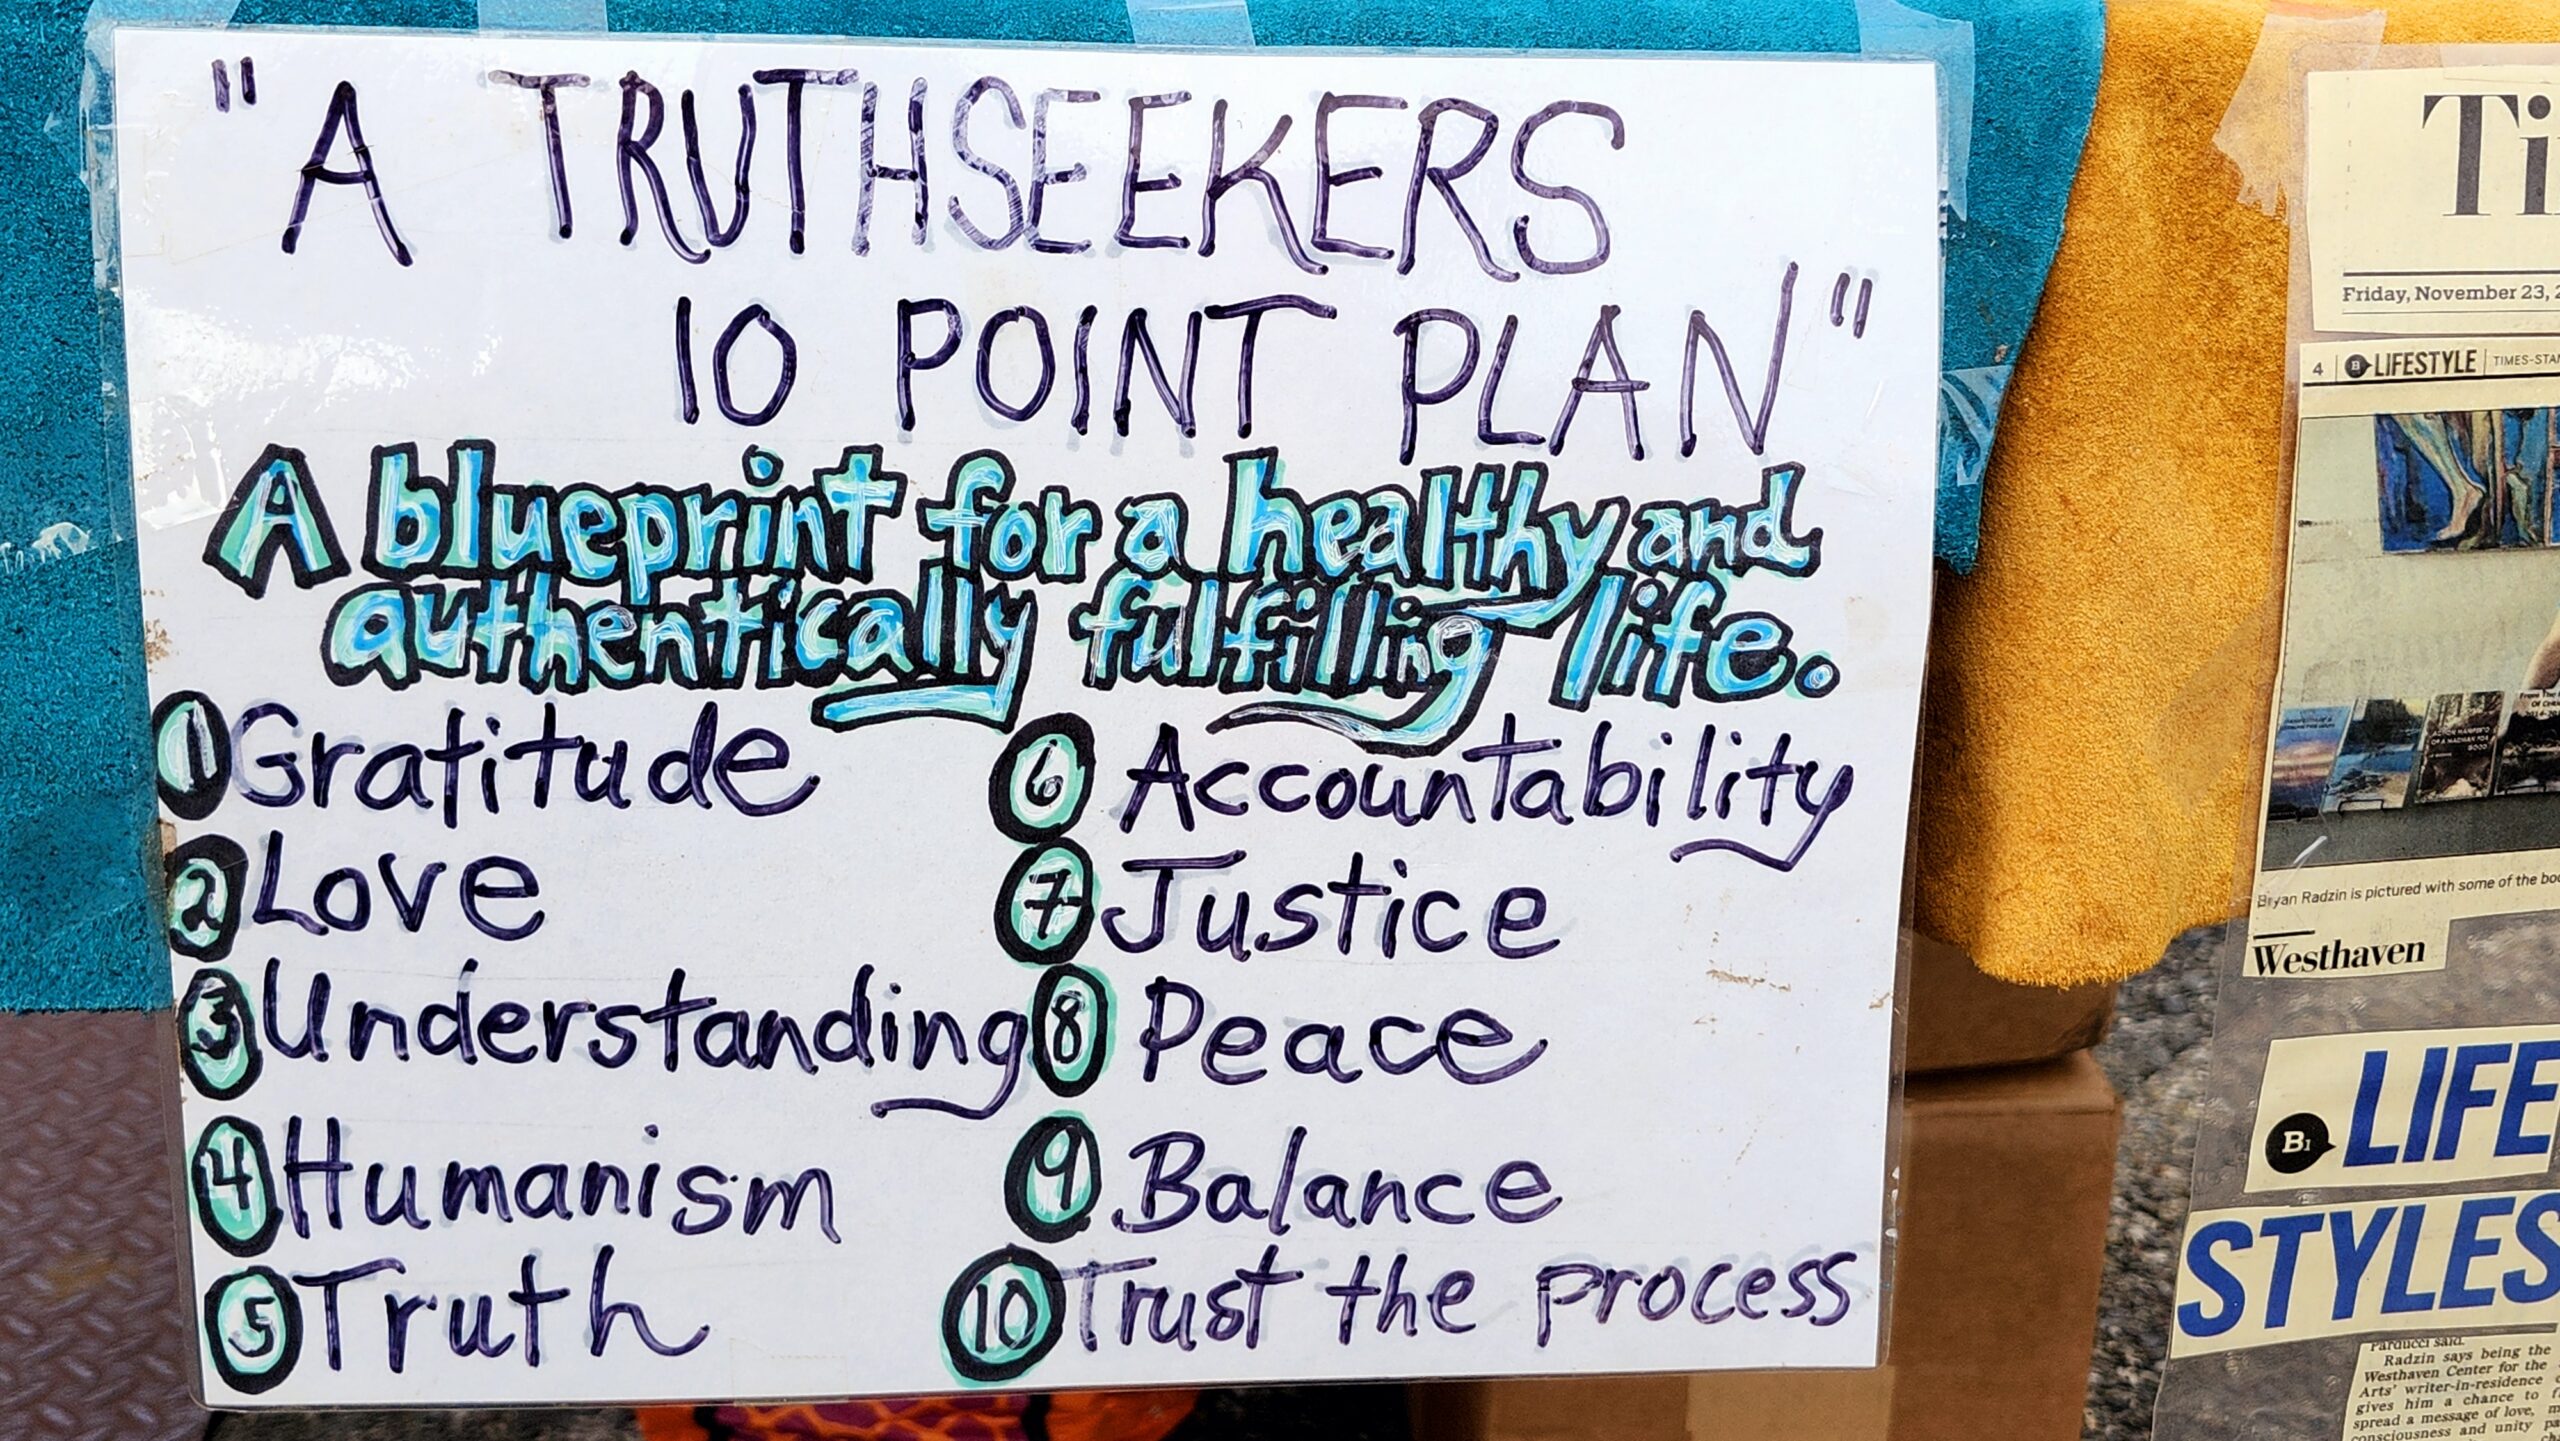 "A TRUTHSEEKERS
10 POINT PLAN"
A blueprint for a healthy and
authentically fulfilling life.
1 Gratitude
2 Love
3 Understanding
4 Humanism
5 Truth
6 Accountability
7 Justice
8 Peace
9 Balance
10 Trust the process
Ti
Friday, November 23, 2
4 | B LIFESTYLE | TIMES-STA
Bryan Radzin is pictured with some of the boo
Westhaven
B1 LIFE
STYLES
Parducci said.
Radzin says being the
Westhaven Center for the
Arts' writer-in-residence
gives him a chance to
spread a message of love,
consciousness and unity